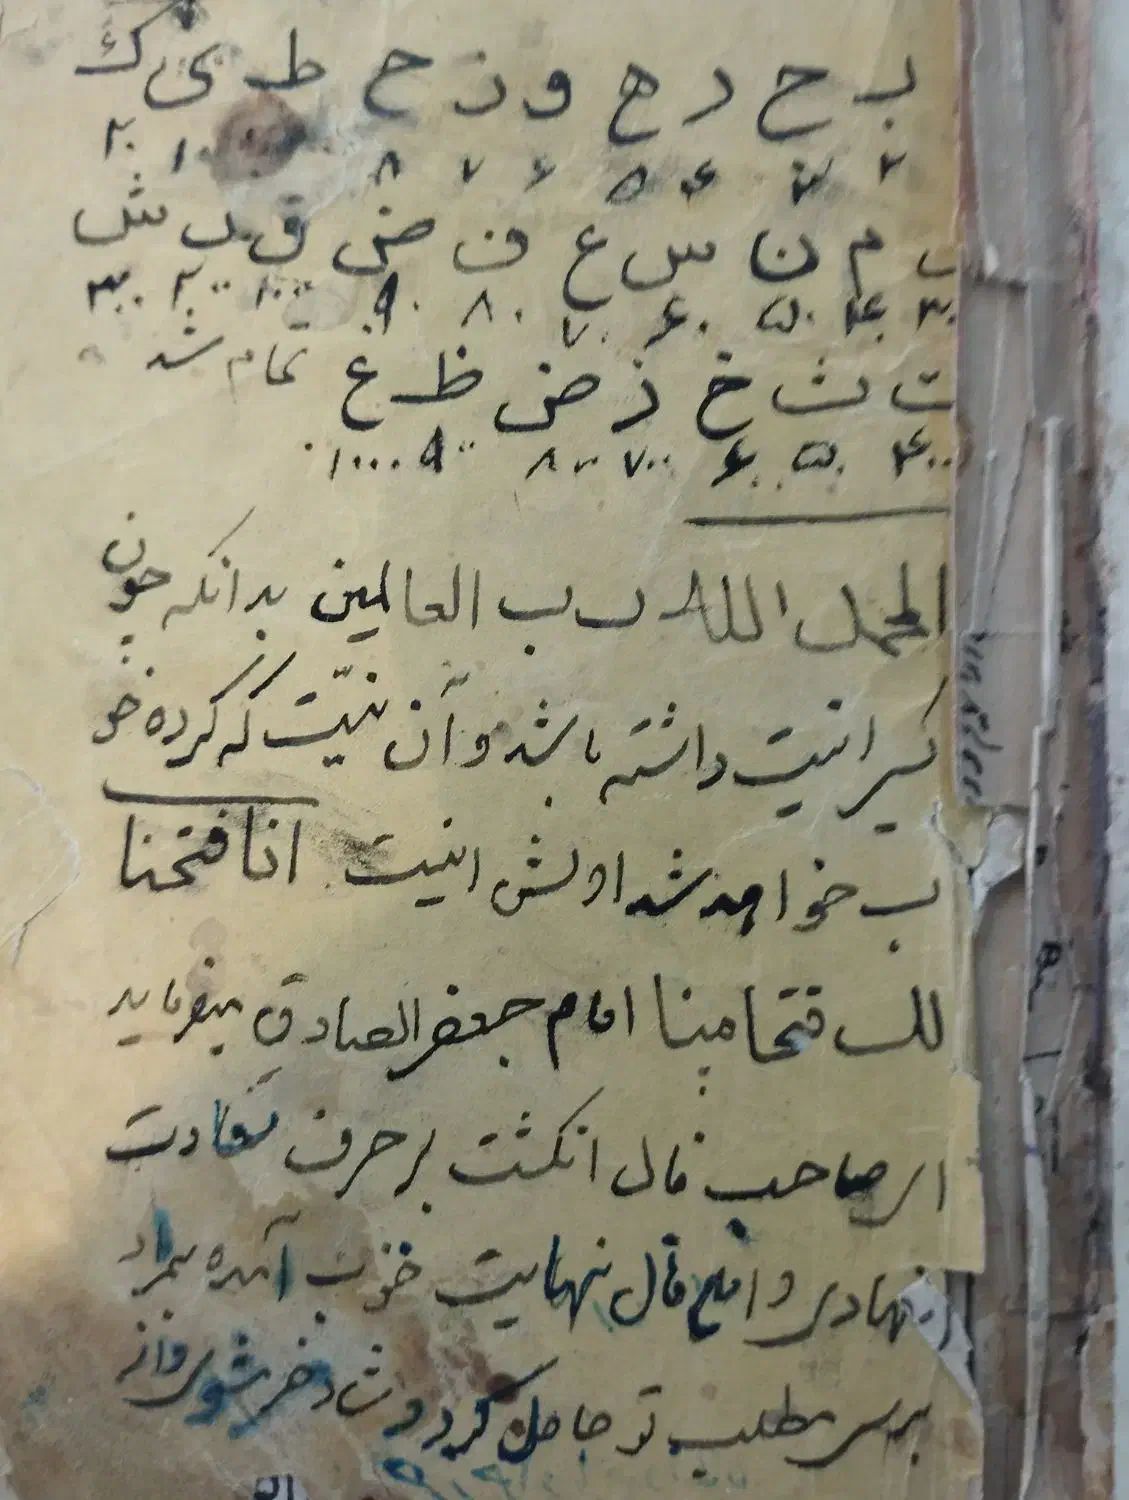 ب ج د ه و ز ح ط ی ک
۲ ۳ ۴ ۵ ۶ ۷ ۸ ۱۰ ۲۰
م ن س ع ف ص ق ر ش
۳۰ ۴۰ ۵۰ ۶۰ ۷۰ ۸۰ ۹۰ ۱۰۰ ۲۰۰ ۳۰۰
ت ث خ ذ ض ظ غ تمام شد
۴۰۰ ۵۰۰ ۶۰۰ ۷۰۰ ۸۰۰ ۹۰۰ ۱۰۰۰
الحمد الله رب العالمین بدانکه چون
کسیرا نیت داشته باشد و آن نیّت که کرده خو
ب خواهد شد اولش اینست انا فتحنا
لک فتحا مبینا امام جعفر الصادق میفرماید
ای صاحب فال انگشت بر حرف سعادت
نهادی و این فال نهایت خوب آمده بمراد
برسی مطلب تو حاصل گردد شاد خرم شوی و از